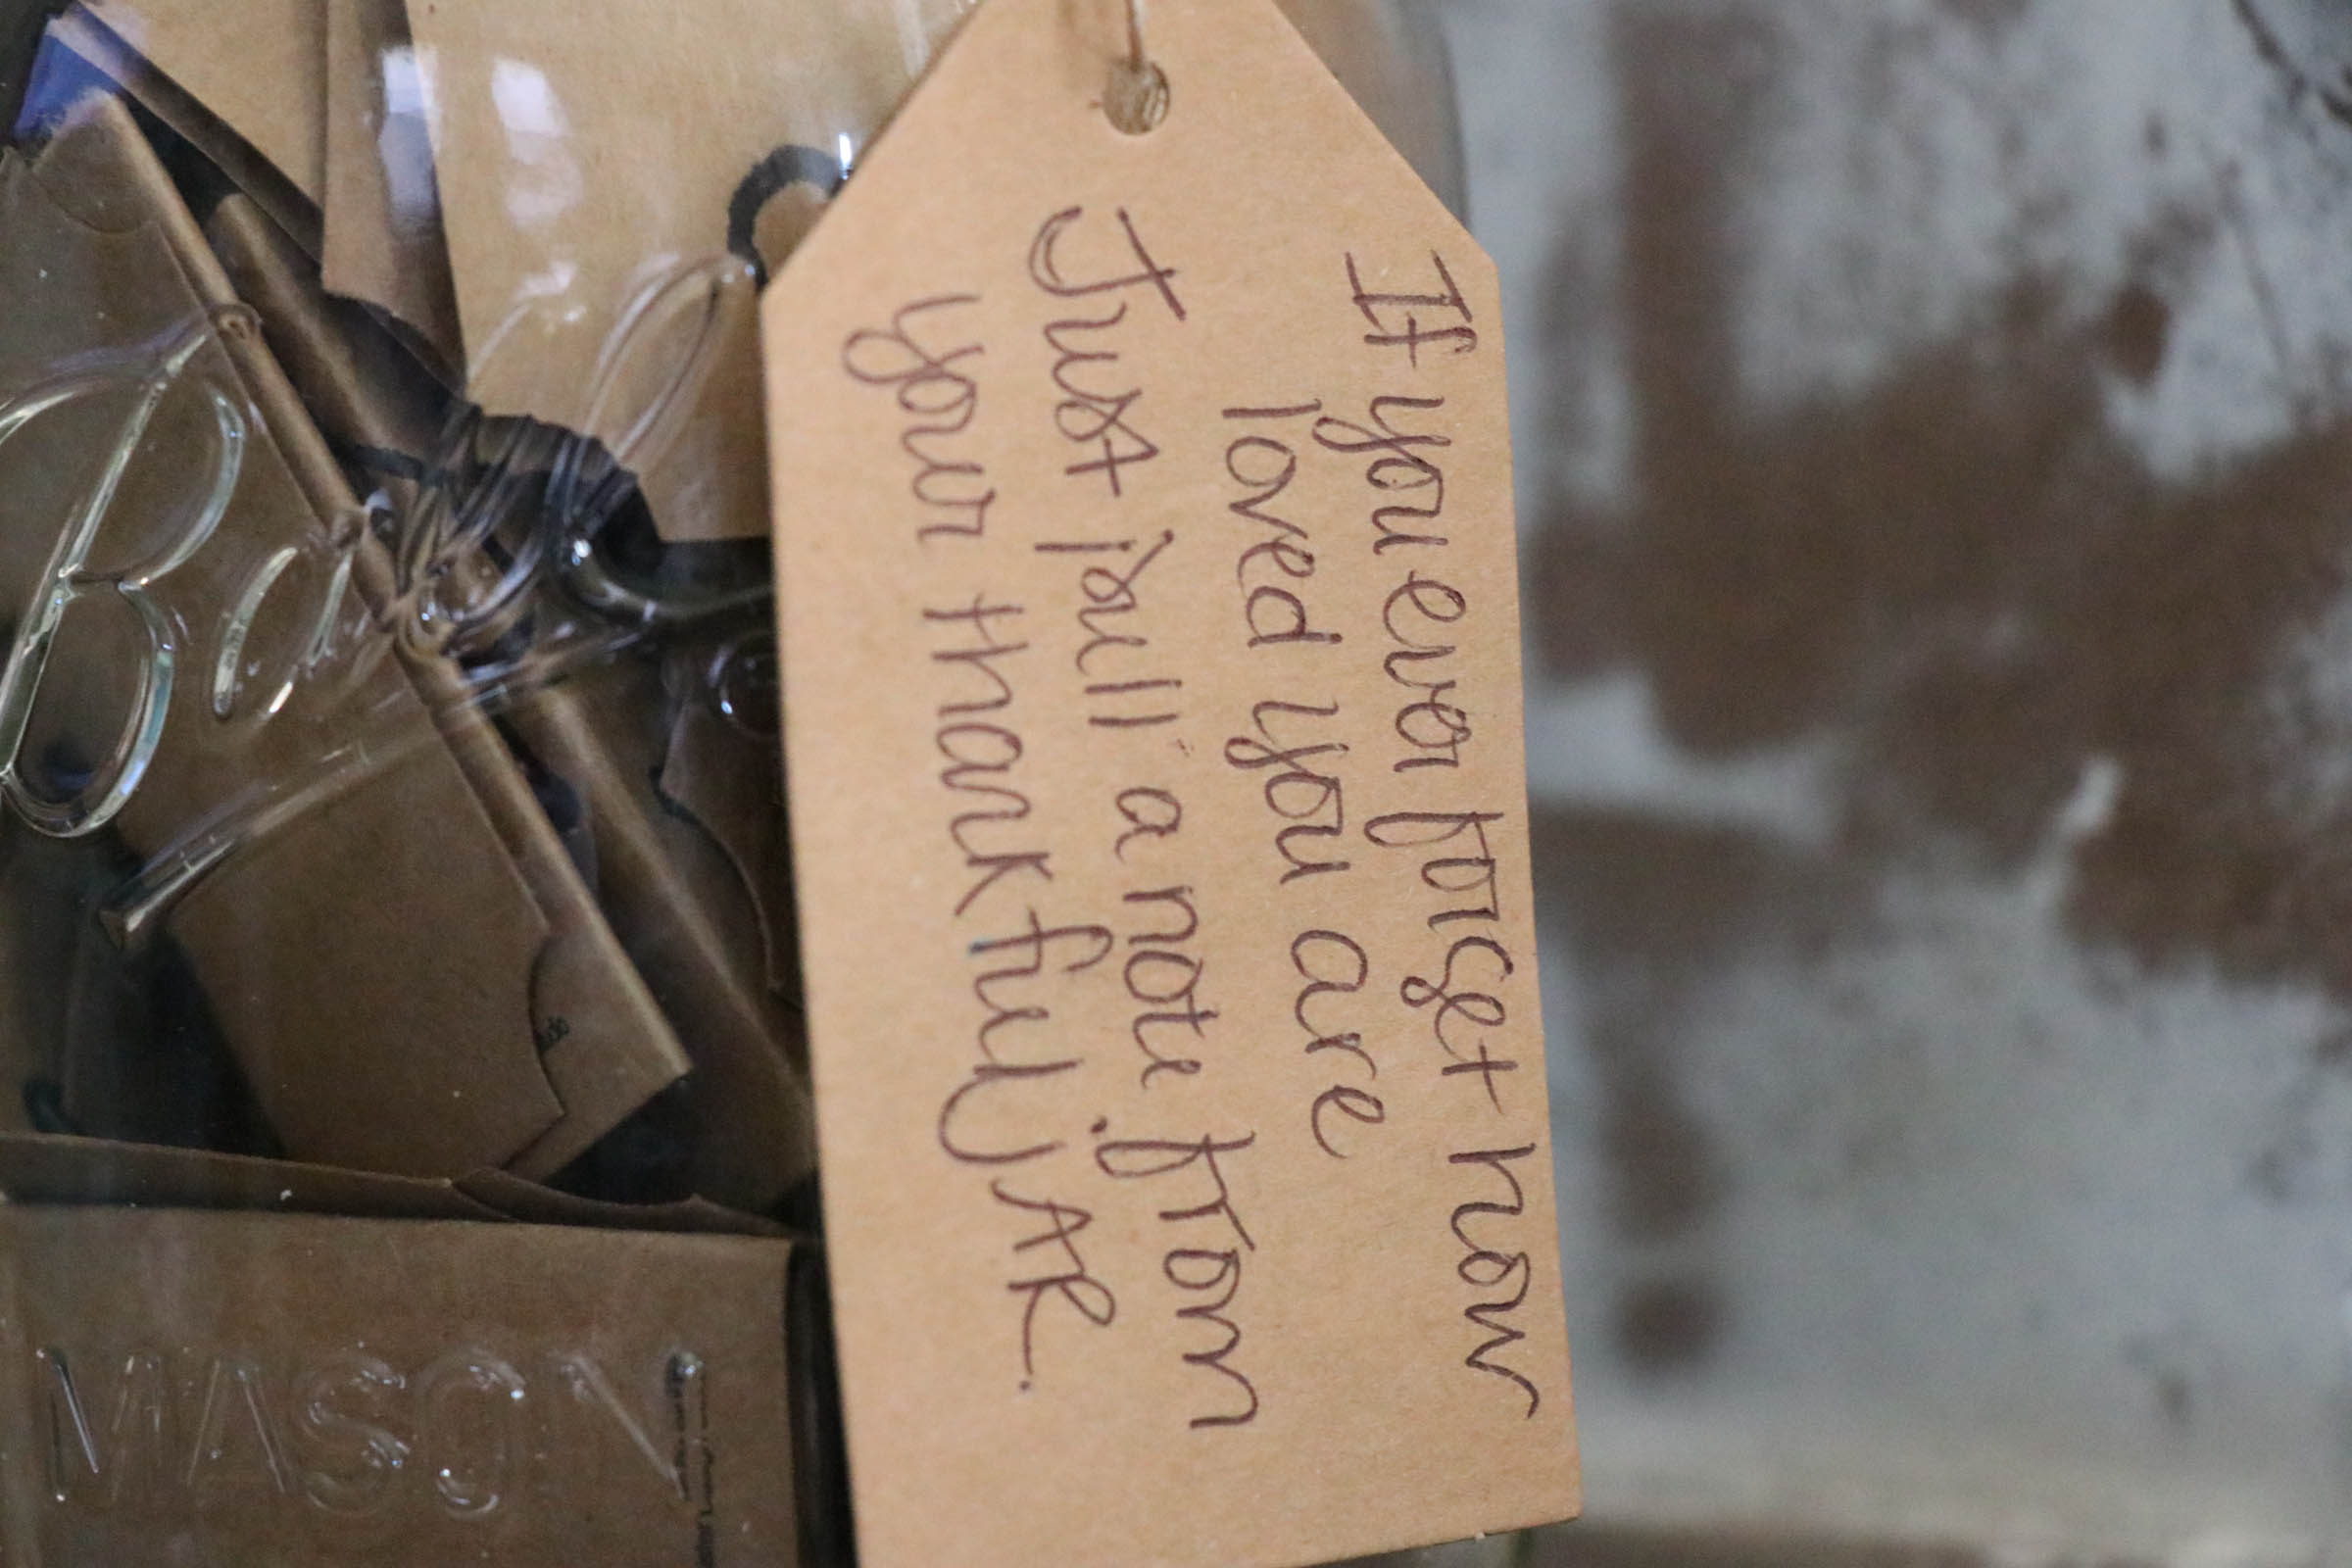 If you ever forget how
loved you are
Just pull a note from
your thankful JAR.
Ball
MASON